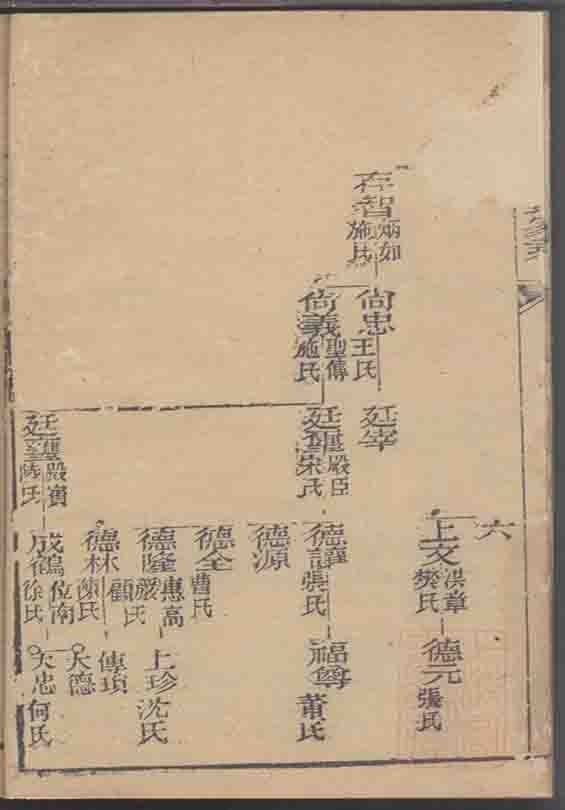 六
上文 洪章 樊氏
德元 張氏
存智 炳如 施氏
尙忠 王氏
尙義 聖傳 施氏
廷宰
殿臣 宋氏
德謹 張氏
德源
德全 曹氏
德隆 惠高 嚴氏 顧氏
德林 陳氏
福 莆氏
上珍 沈氏
傳項
大德
殿賓 陸氏
成鶴 位南 徐氏
大忠 何氏